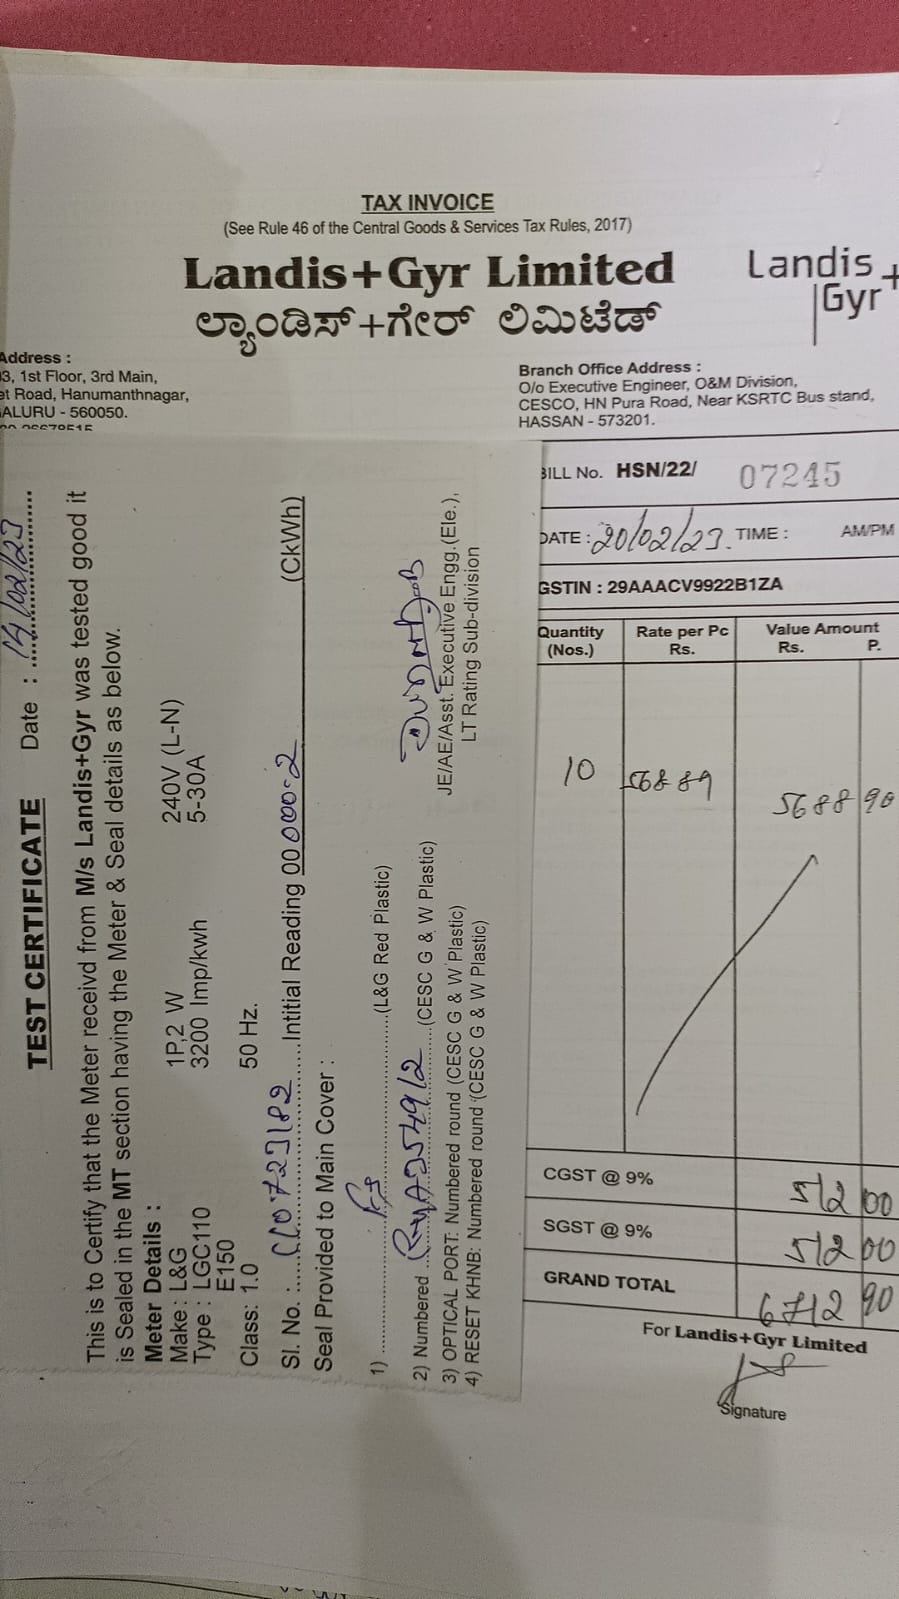 TAX INVOICE
(See Rule 46 of the Central Goods & Services Tax Rules, 2017)
Landis+Gyr Limited
ಲ್ಯಾಂಡಿಸ್+ಗೇರ್ ಲಿಮಿಟೆಡ್
Landis
Gyr+
Address :
3, 1st Floor, 3rd Main,
et Road, Hanumanthnagar,
ALURU - 560050.
Branch Office Address :
O/o Executive Engineer, O&M Division,
CESCO, HN Pura Road, Near KSRTC Bus stand,
HASSAN - 573201.
BILL No. HSN/22/ 07245
DATE : 20/02/23. TIME : AM/PM
GSTIN : 29AAACV9922B1ZA
Quantity (Nos.) Rate per Pc Rs. Value Amount Rs. P.
10 568 89 5688 90
CGST @ 9% 512 00
SGST @ 9% 512 00
GRAND TOTAL 6712 90
For Landis+Gyr Limited
Signature
TEST CERTIFICATE Date : 14/02/23
This is to Certify that the Meter receivd from M/s Landis+Gyr was tested good it
is Sealed in the MT section having the Meter & Seal details as below.
Meter Details :
Make : L&G 1P,2 W 240V (L-N)
Type : LGC110 3200 Imp/kwh 5-30A
E150
Class: 1.0 50 Hz.
Sl. No. : Intitial Reading 00000.2 (CkWh)
Seal Provided to Main Cover :
1) (L&G Red Plastic)
2) Numbered (CESC G & W Plastic)
3) OPTICAL PORT: Numbered round (CESC G & W Plastic)
4) RESET KHNB: Numbered round (CESC G & W Plastic)
JE/AE/Asst. Executive Engg.(Ele.),
LT Rating Sub-division